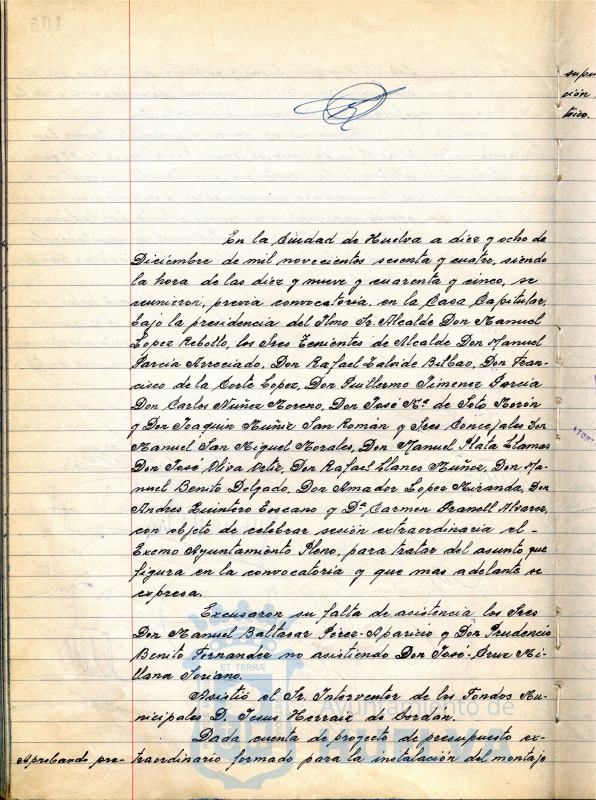 supre
ción
tivo.
En la Ciudad de Huelva a diez y ocho de
Diciembre de mil novecientos sesenta y cuatro, siendo
la hora de las diez y nueve y cuarenta y cinco, se
reunieron, previa convocatoria, en la Casa Capitular,
bajo la presidencia del Ilmo Sr. Alcalde Don Manuel
Lopez Rebollo, los Sres Tenientes de Alcalde Don Manuel
Garcia Arreciado, Don Rafael Zalvide Bilbao, Don Fran-
cisco de la Corte Lopez, Don Guillermo Jimenez Garcia
Don Carlos Nuñez Moreno, Don José Mª de Soto Morón
y Don Joaquin Muñiz San Román y Sres Concejales Don
Manuel San Miguel Morales, Don Manuel Plata Llamas
Don José Oliva Ortiz, Don Rafael Llanes Muñoz, Don Ma-
nuel Benito Delgado, Don Amador Lopez Miranda, Don
Andres Quintero Toscano y Dª Carmen Pranell Alvarez,
con objeto de celebrar sesión extraordinaria el -
Excmo Ayuntamiento Pleno, para tratar del asunto que
figura en la convocatoria y que mas adelante se
expresa.
Excusaron su falta de asistencia los Sres
Don Manuel Baltasar Pérez-Aparicio y Don Prudencio
Benito Fernandez no asistiendo Don José-Cruz Mi-
llana Soriano.
ET TERRÆ
Asistió el Sr. Interventor de los Fondos Mu-
nicipales D. Jesus Herraiz de Cordán.
Ayuntamiento de
HUELVA
Dada cuenta de proyecto de presupuesto ex-
Aprobando pre- traordinario formado para la instalación del montaje